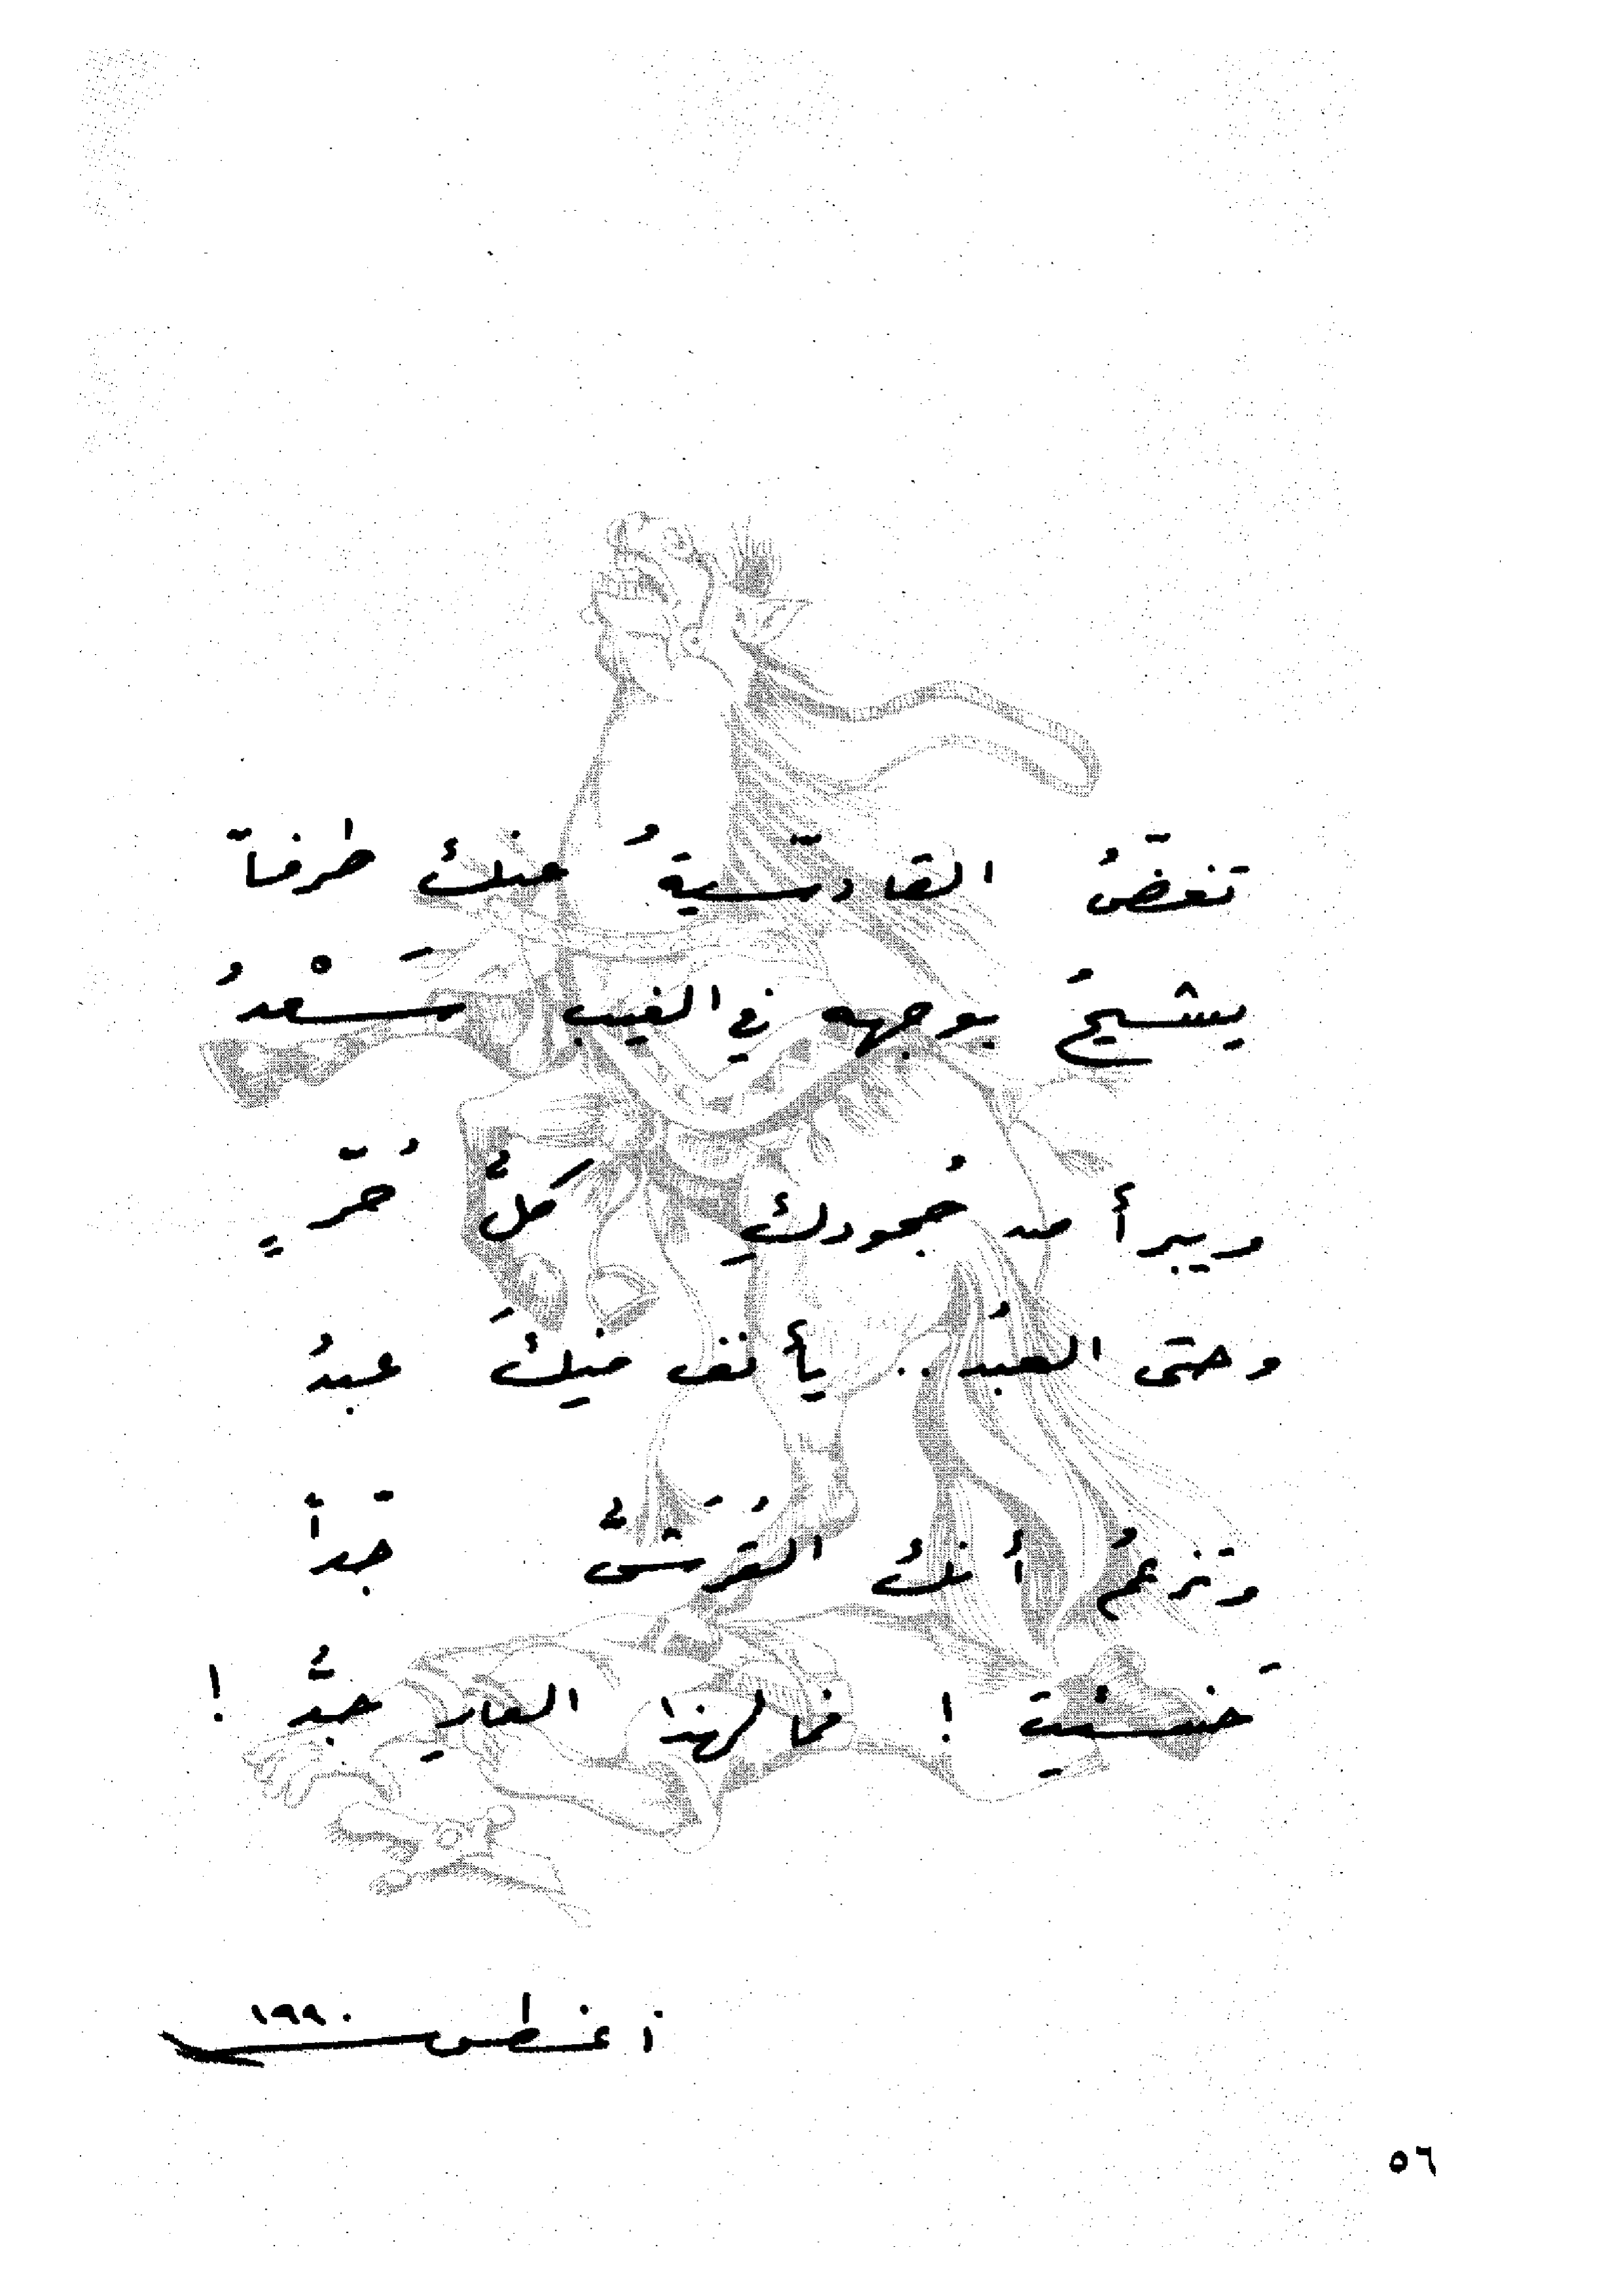 تغضّ القادسيّةُ عنكَ طرفاً
يشيحُ بوجهه في الغيب سَعْدُ
ويبرأ من جُحودكِ كلُّ حُرٍّ
وحتى العبدُ.. يأنف منكَ عبدُ
وتزعمُ أنكَ القُرَشيُّ جَداً
خسئْتَ! فما لهذا العارِ جَدُّ!
أغسطس ١٩٩٠
٥٦